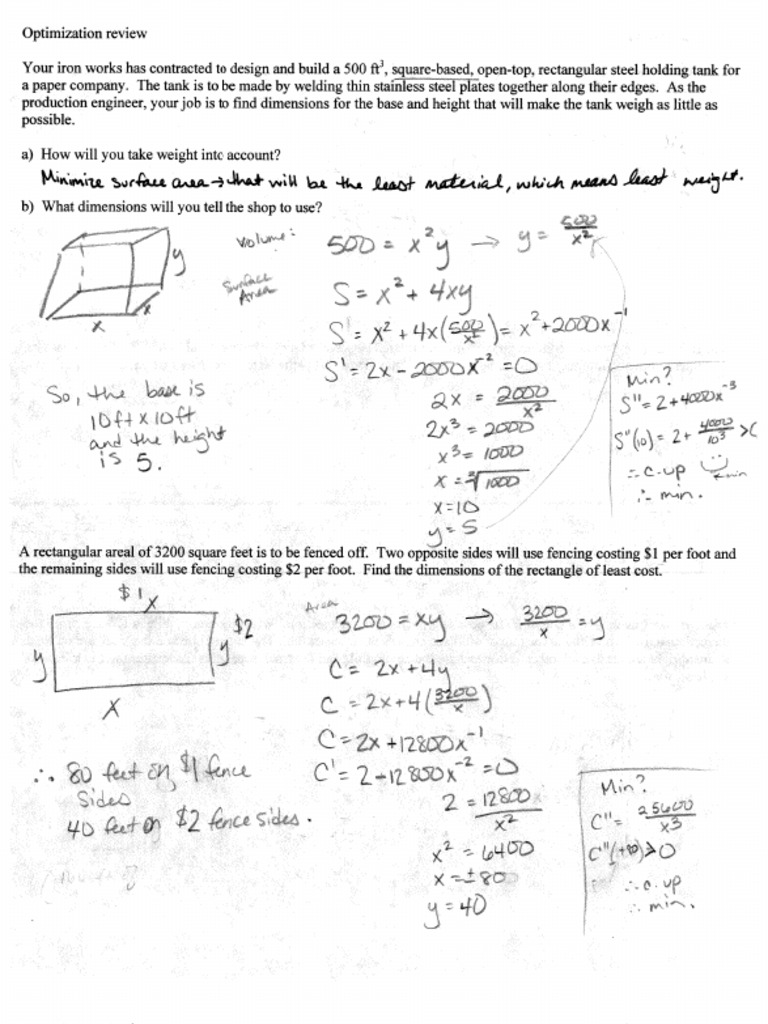 Optimization review
Your iron works has contracted to design and build a 500 ft³, square-based, open-top, rectangular steel holding tank for
a paper company. The tank is to be made by welding thin stainless steel plates together along their edges. As the
production engineer, your job is to find dimensions for the base and height that will make the tank weigh as little as
possible.
a) How will you take weight into account?
Minimize surface area → that will be the least material, which means least weight.
b) What dimensions will you tell the shop to use?
y
x
x
Volume: 500 = x²y → y = 500/x²
Surface Area
S = x² + 4xy
S' = x² + 4x(500/x²) = x² + 2000x⁻¹
S' = 2x - 2000x⁻² = 0
2x = 2000/x²
2x³ = 2000
x³ = 1000
x = ³√1000
x = 10
y = 5
So, the base is
10ft x 10ft
and the height
is 5.
Min?
S'' = 2 + 4000x⁻³
S''(10) = 2 + 4000/10³ > 0
∴ c. up
min
∴ min.
A rectangular areal of 3200 square feet is to be fenced off. Two opposite sides will use fencing costing $1 per foot and
the remaining sides will use fencing costing $2 per foot. Find the dimensions of the rectangle of least cost.
$1 x
y
y $2
x
Area
3200 = xy → 3200/x = y
C = 2x + 4y
C = 2x + 4(3200/x)
C = 2x + 12800x⁻¹
C' = 2 - 12800x⁻² = 0
2 = 12800/x²
x² = 6400
x = ±80
y = 40
∴ 80 feet on $1 fence
sides
40 feet on $2 fence sides.
Min?
C'' = 25600/x³
> 0
∴ c. up
∴ min.